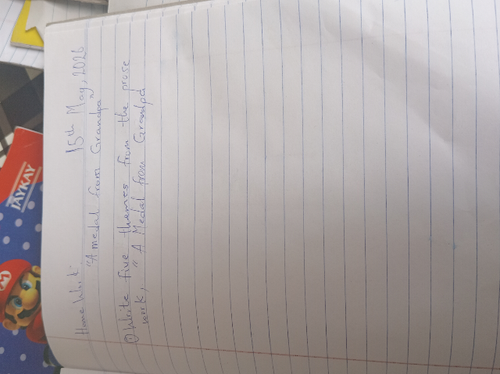 Home Work 15th May, 2026
"A medal from Grandpa"
① Write five themes from the prose
work, "A Medal from Grandpa
TAYKAY
M